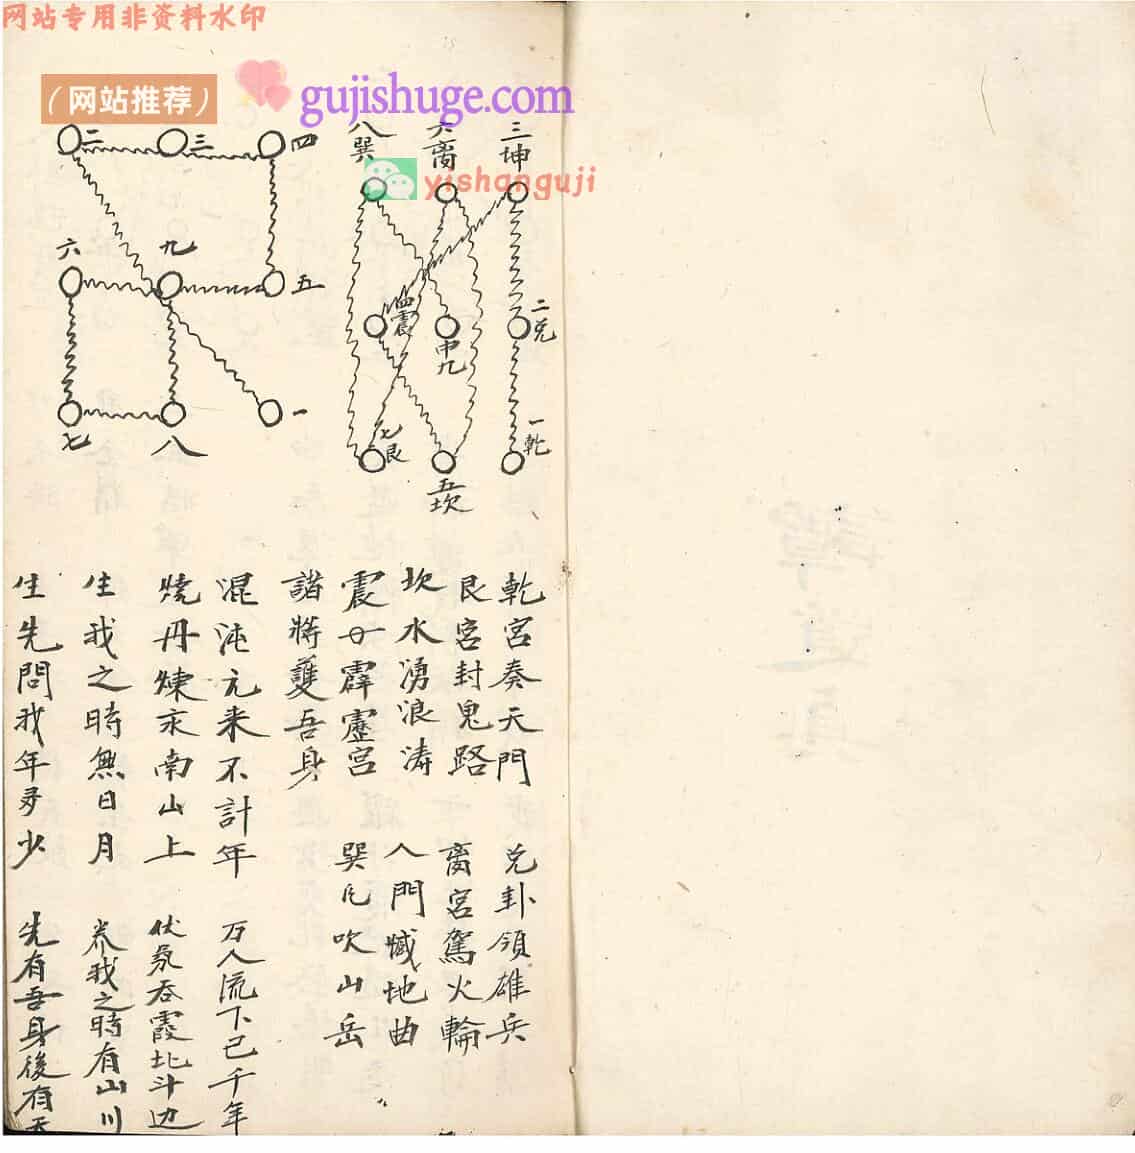 网站专用非资料水印
（网站推荐）
gujishuge.com
yishanguji
三坤
六离
八巽
二兑
中九
四震
一乾
五坎
七艮
四
三
二
五
九
六
一
八
七
乾宫奏天門
兑卦領雄兵
艮宫封鬼路
离宫駕火輪
坎水湧浪濤
八門
地曲
震
霹靂宫
巽
吹山岳
諸將護吾身
混沌元来不計年
万人流下已千年
燒丹煉汞南山上
伏氣吞霞北斗边
生我之時無日月
养我之時有山川
生先問我年多少
先有吾身後有天